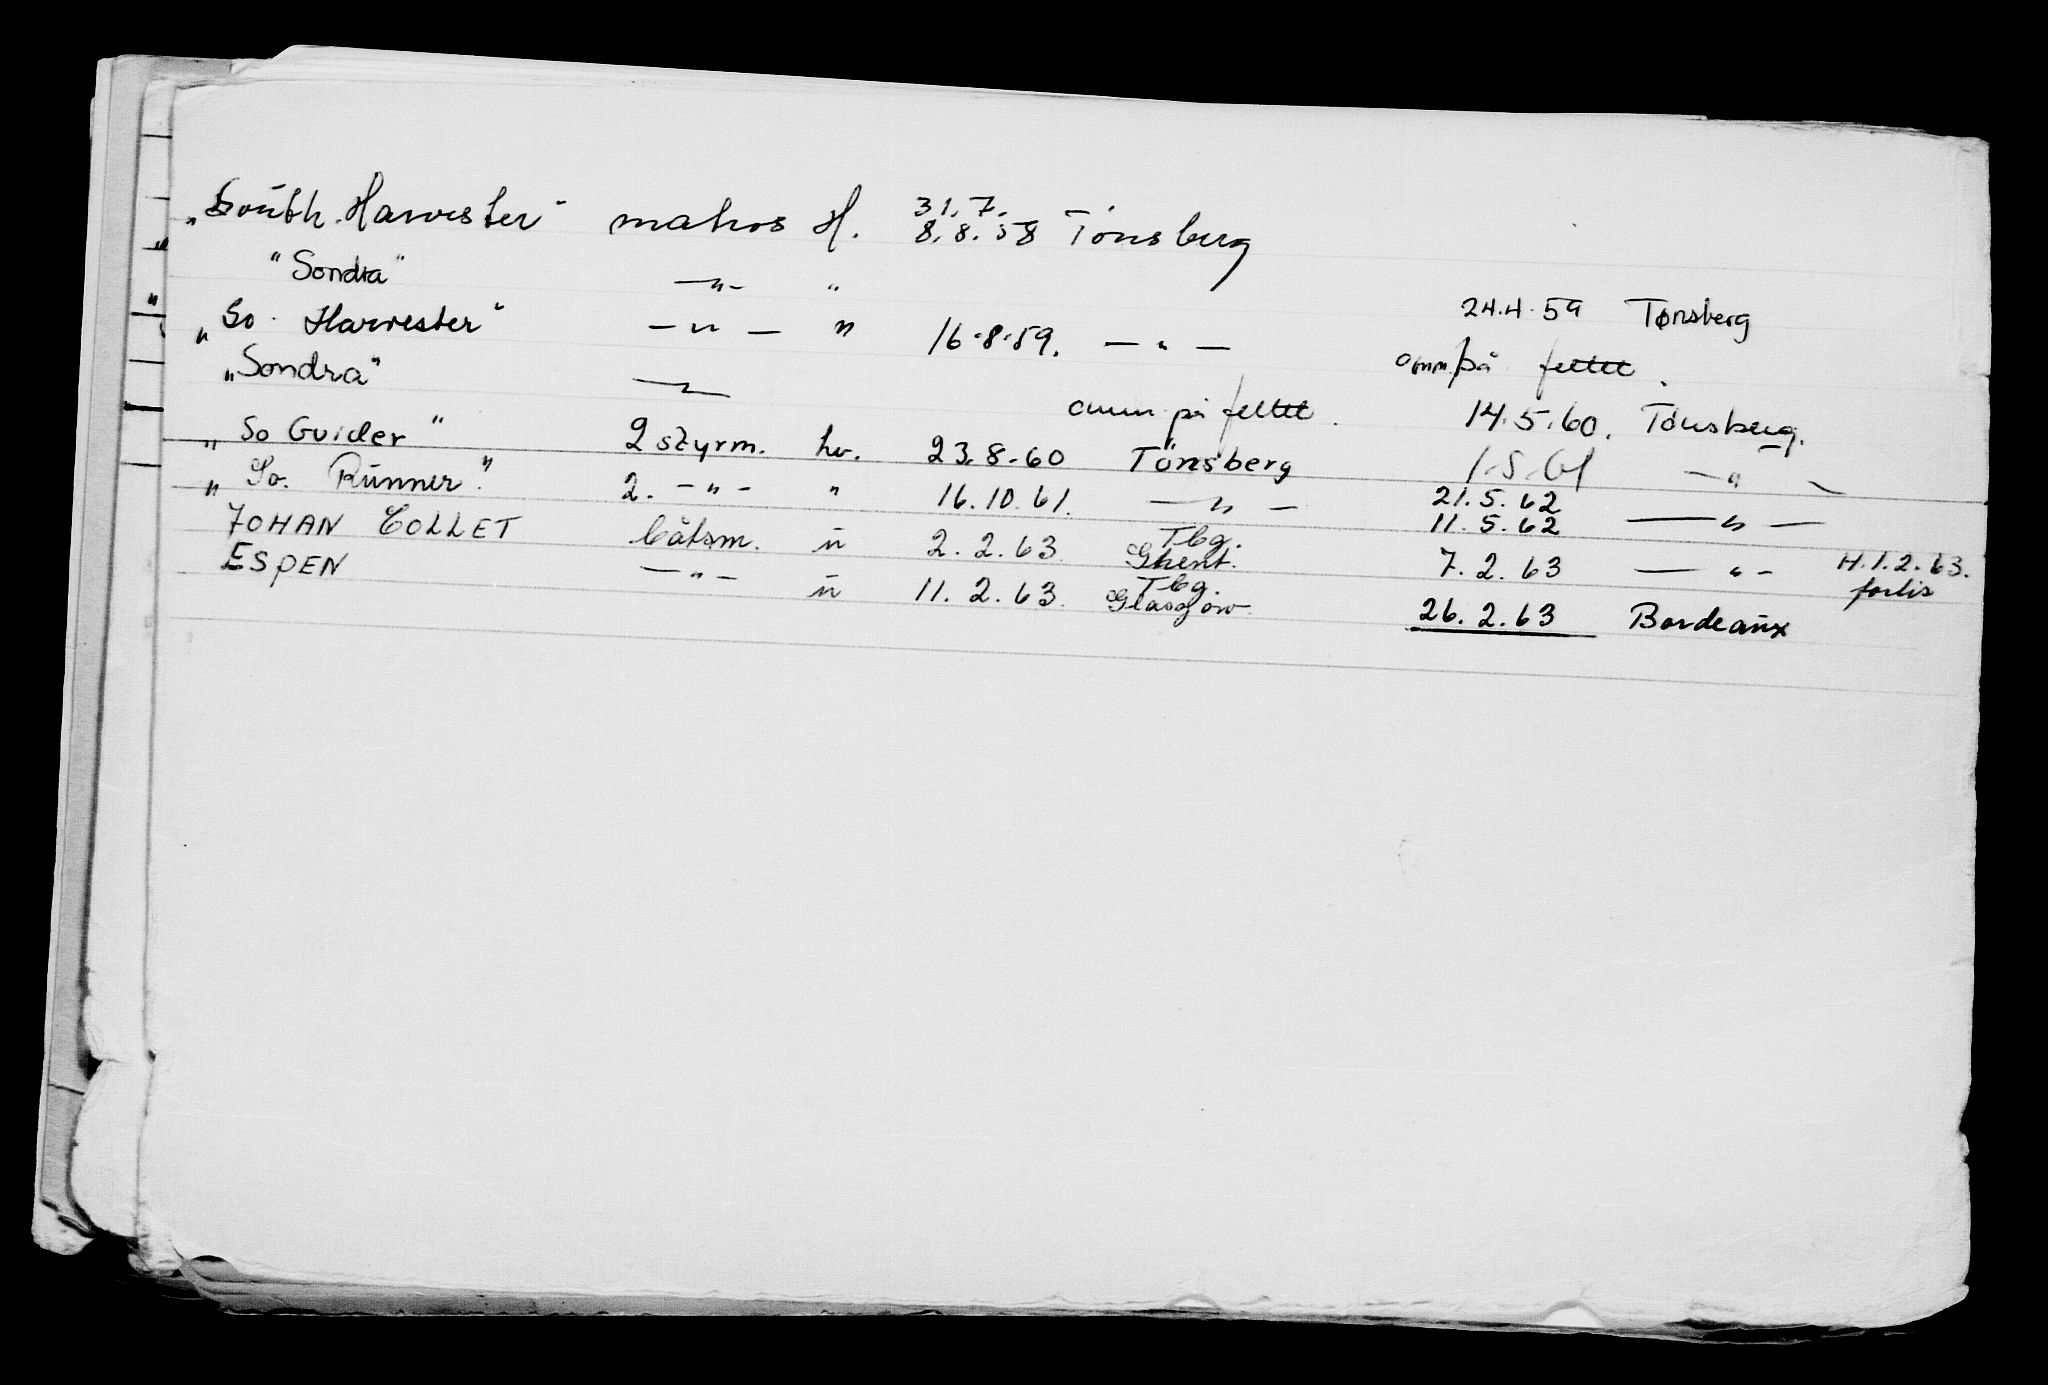 „South. Harvester" matros H. 31.7. 8.8.58 Tönsberg
"Sondra" —"— " 24.4.59 Tønsberg
„So. Harvester" —"— " 16.8.59. —"— omm. på feltet.
„Sondra" —"— omm. på feltet. 14.5.60. Tönsberg.
„So Guider" 2 styrm. hv. 23.8.60 Tönsberg 1.5.61 —"—
„So. Runner." 2. —"— " 16.10.61. —"— 21.5.62 11.5.62 —"—
JOHAN COLLET båtsm. u 2.2.63 Tbg. Ghent. 7.2.63 —"— H.1.2.63. forlis
ESPEN —"— u 11.2.63. Tbg. Glasgow 26.2.63 Bordeaux